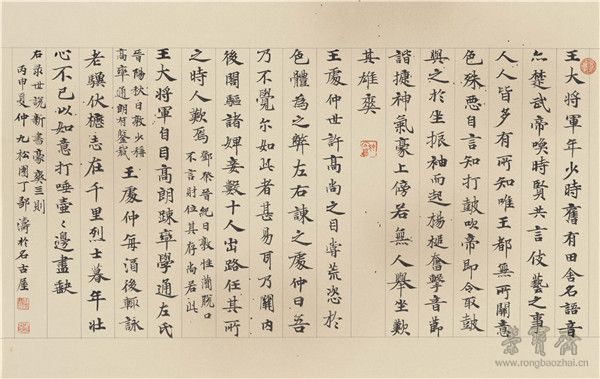 王大将軍年少時舊有田舍名語音
亦楚武帝喚時賢共言伎藝之事
人人皆多有所知唯王都無所關意
色殊惡自言知打鼓吹帝即令取鼓
與之於坐振袖而起揚槌奮擊音節
諧捷神氣豪上傍若無人舉坐歎
其雄爽
王處仲世許高尚之目嘗荒恣於
色體為之弊左右諫之處仲曰吾
乃不覺尔如此者甚易耳乃開內
後閤驅諸婢妾數十人出路任其所
之時人歎焉 鄧粲晉紀曰敦性簡脫口
不言財位其存尚若此
王大將軍自目高朗疎率學通左氏
晉陽秋曰敦少稱
高率通朗有鑒裁 王處仲每酒後輒詠
老驥伏櫪志在千里烈士暮年壯
心不已以如意打唾壺〻邊盡缺
右录世説新書豪爽三則
丙申夏仲九松園丁鄒濤於石古屋
榮寶齋
www.rongbaozhai.cn